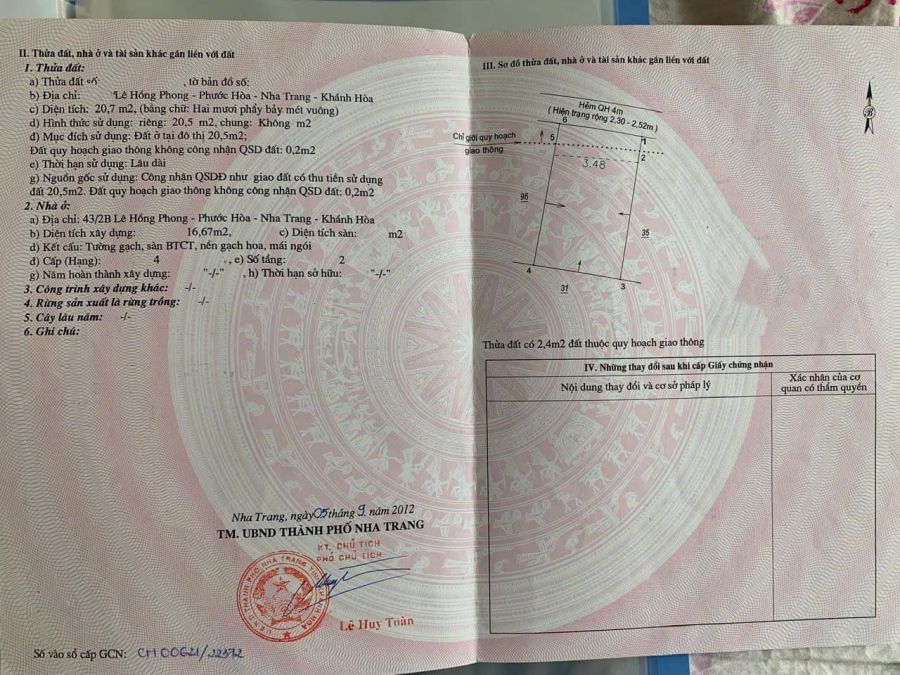 II. Thửa đất, nhà ở và tài sản khác gắn liền với đất
1. Thửa đất:
a) Thửa đất số , tờ bản đồ số:
b) Địa chỉ: Lê Hồng Phong - Phước Hòa - Nha Trang - Khánh Hòa
c) Diện tích: 20,7 m2, (bằng chữ: Hai mươi phẩy bảy mét vuông)
d) Hình thức sử dụng: riêng: 20,5 m2, chung: Không m2
đ) Mục đích sử dụng: Đất ở tại đô thị 20,5m2;
Đất quy hoạch giao thông không công nhận QSD đất: 0,2m2
e) Thời hạn sử dụng: Lâu dài
g) Nguồn gốc sử dụng: Công nhận QSDĐ như giao đất có thu tiền sử dụng
đất 20,5m2. Đất quy hoạch giao thông không công nhận QSD đất: 0,2m2
2. Nhà ở:
a) Địa chỉ: 43/2B Lê Hồng Phong - Phước Hòa - Nha Trang - Khánh Hòa
b) Diện tích xây dựng: 16,67m2, c) Diện tích sàn: m2
d) Kết cấu: Tường gạch, sàn BTCT, nền gạch hoa, mái ngói
đ) Cấp (Hạng): 4 , e) Số tầng: 2
g) Năm hoàn thành xây dựng: "-/-" , h) Thời hạn sở hữu: "-/-"
3. Công trình xây dựng khác: -/-
4. Rừng sản xuất là rừng trồng: -/-
5. Cây lâu năm: -/-
6. Ghi chú:
Nha Trang, ngày 05 tháng 9 năm 2012
TM. UBND THÀNH PHỐ NHA TRANG
KT. CHỦ TỊCH
PHÓ CHỦ TỊCH
Lê Huy Toàn
Số vào sổ cấp GCN: CH00621/22372
III. Sơ đồ thửa đất, nhà ở và tài sản khác gắn liền với đất
Hẻm QH 4m
( Hiện trạng rộng 2,30 - 2,52m )
Chỉ giới quy hoạch
giao thông
B
6
5
1
2
3.48
96
35
4
3
31
Thửa đất có 2,4m2 đất thuộc quy hoạch giao thông
IV. Những thay đổi sau khi cấp Giấy chứng nhận
Nội dung thay đổi và cơ sở pháp lý
Xác nhận của cơ
quan có thẩm quyền